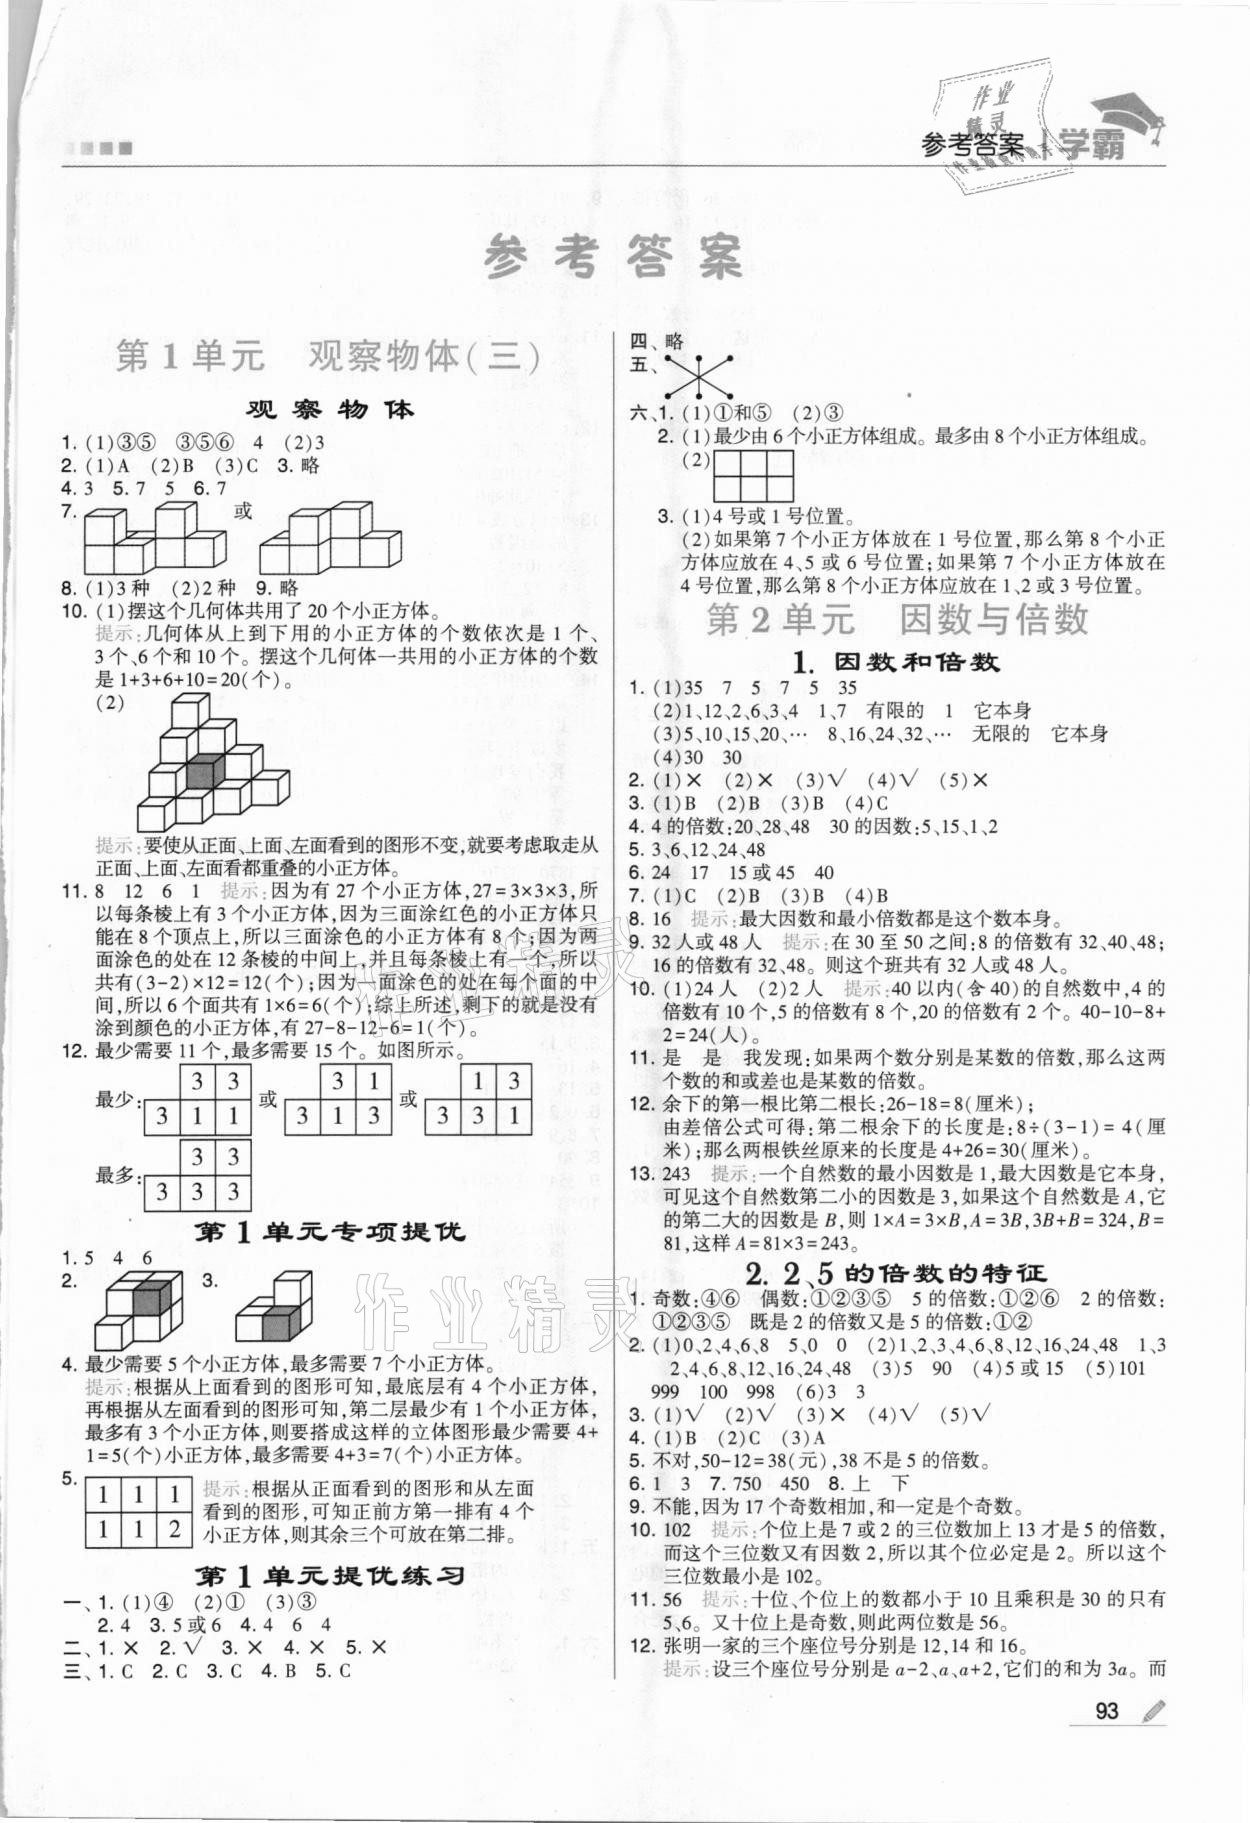 参考答案 学霸
作业
精灵
参考答案
第1单元 观察物体(三)
观察物体
1. (1)③⑤ ③⑤⑥ 4 (2)3
2. (1)A (2)B (3)C 3. 略
4. 3 5. 7 5 6. 7
7. 或
8. (1)3种 (2)2种 9. 略
10. (1)摆这个几何体共用了20个小正方体。
提示:几何体从上到下用的小正方体的个数依次是1个、
3个、6个和10个。摆这个几何体一共用的小正方体的个数
是1+3+6+10=20(个)。
(2)
提示:要使从正面、上面、左面看到的图形不变,就要考虑取走从
正面、上面、左面看都重叠的小正方体。
11. 8 12 6 1 提示:因为有27个小正方体,27=3×3×3,所
以每条棱上有3个小正方体,因为三面涂红色的小正方体只
能在8个顶点上,所以三面涂色的小正方体有8个;因为两
面涂色的处在12条棱的中间上,并且每条棱上有一个,所以
共有(3-2)×12=12(个);因为一面涂色的处在每个面的中
间,所以6个面共有1×6=6(个);综上所述,剩下的就是没有
涂到颜色的小正方体,有27-8-12-6=1(个)。
12. 最少需要11个,最多需要15个。如图所示。
最少: 3 3 或 3 1 或 1 3
3 1 1 3 1 3 3 3 1
最多: 3 3
3 3 3
第1单元专项提优
1. 5 4 6
2. 3.
4. 最少需要5个小正方体,最多需要7个小正方体。
提示:根据从上面看到的图形可知,最底层有4个小正方体,
再根据从左面看到的图形可知,第二层最少有1个小正方体,
最多有3个小正方体,则要搭成这样的立体图形最少需要4+
1=5(个)小正方体,最多需要4+3=7(个)小正方体。
5. 1 1 1
1 1 2
提示:根据从正面看到的图形和从左面
看到的图形,可知正前方第一排有4个
小正方体,则其余三个可放在第二排。
第1单元提优练习
一、1. (1)④ (2)① (3)③
2. 4 3. 5或6 4. 4 6 4
二、1. × 2. √ 3. × 4. × 5. ×
三、1. C 2. C 3. C 4. B 5. C
四、略
五、
六、1. (1)①和⑤ (2)③
2. (1)最少由6个小正方体组成。最多由8个小正方体组成。
(2)
3. (1)4号或1号位置。
(2)如果第7个小正方体放在1号位置,那么第8个小正
方体应放在4、5或6号位置;如果第7个小正方体放在
4号位置,那么第8个小正方体应放在1、2或3号位置。
第2单元 因数与倍数
1. 因数和倍数
1. (1)35 7 5 7 5 35
(2)1、12、2、6、3、4 1、7 有限的 1 它本身
(3)5、10、15、20、… 8、16、24、32、… 无限的 它本身
(4)30 30
2. (1)× (2)× (3)√ (4)√ (5)×
3. (1)B (2)B (3)B (4)C
4. 4的倍数:20、28、48 30的因数:5、15、1、2
5. 3、6、12、24、48
6. 24 17 15或45 40
7. (1)C (2)B (3)B (4)B
8. 16 提示:最大因数和最小倍数都是这个数本身。
9. 32人或48人 提示:在30至50之间:8的倍数有32、40、48;
16的倍数有32、48。则这个班共有32人或48人。
10. (1)24人 (2)2人 提示:40以内(含40)的自然数中,4的
倍数有10个,5的倍数有8个,20的倍数有2个。40-10-8+
2=24(人)。
11. 是 是 我发现:如果两个数分别是某数的倍数,那么这两
个数的和或差也是某数的倍数。
12. 余下的第一根比第二根长:26-18=8(厘米);
由差倍公式可得:第二根余下的长度是:8÷(3-1)=4(厘
米);那么两根铁丝原来的长度是4+26=30(厘米)。
13. 243 提示:一个自然数的最小因数是1,最大因数是它本身,
可见这个自然数第二小的因数是3,如果这个自然数是A,它
的第二大的因数是B,则1×A=3×B,A=3B,3B+B=324,B=
81,这样A=81×3=243。
2. 2、5的倍数的特征
1. 奇数:④⑥ 偶数:①②③⑤ 5的倍数:①②⑥ 2的倍数:
①②③⑤ 既是2的倍数又是5的倍数:①②
2. (1)0、2、4、6、8 5、0 0 (2)1、2、3、4、6、8、12、16、24、48 1、3
2、4、6、8、12、16、24、48 (3)5 90 (4)5或15 (5)101
999 100 998 (6)3 3
3. (1)√ (2)√ (3)× (4)√ (5)√
4. (1)B (2)C (3)A
5. 不对,50-12=38(元),38不是5的倍数。
6. 1 3 7. 750 450 8. 上 下
9. 不能,因为17个奇数相加,和一定是个奇数。
10. 102 提示:个位上是7或2的三位数加上13才是5的倍数,
而这个三位数又有因数2,所以其个位必定是2。所以这个
三位数最小是102。
11. 56 提示:十位、个位上的数都小于10且乘积是30的只有
5、6。又十位上是奇数,则此两位数是56。
12. 张明一家的三个座位号分别是12,14和16。
提示:设三个座位号分别是a-2、a、a+2,它们的和为3a。而
作业精灵
作业精灵
93